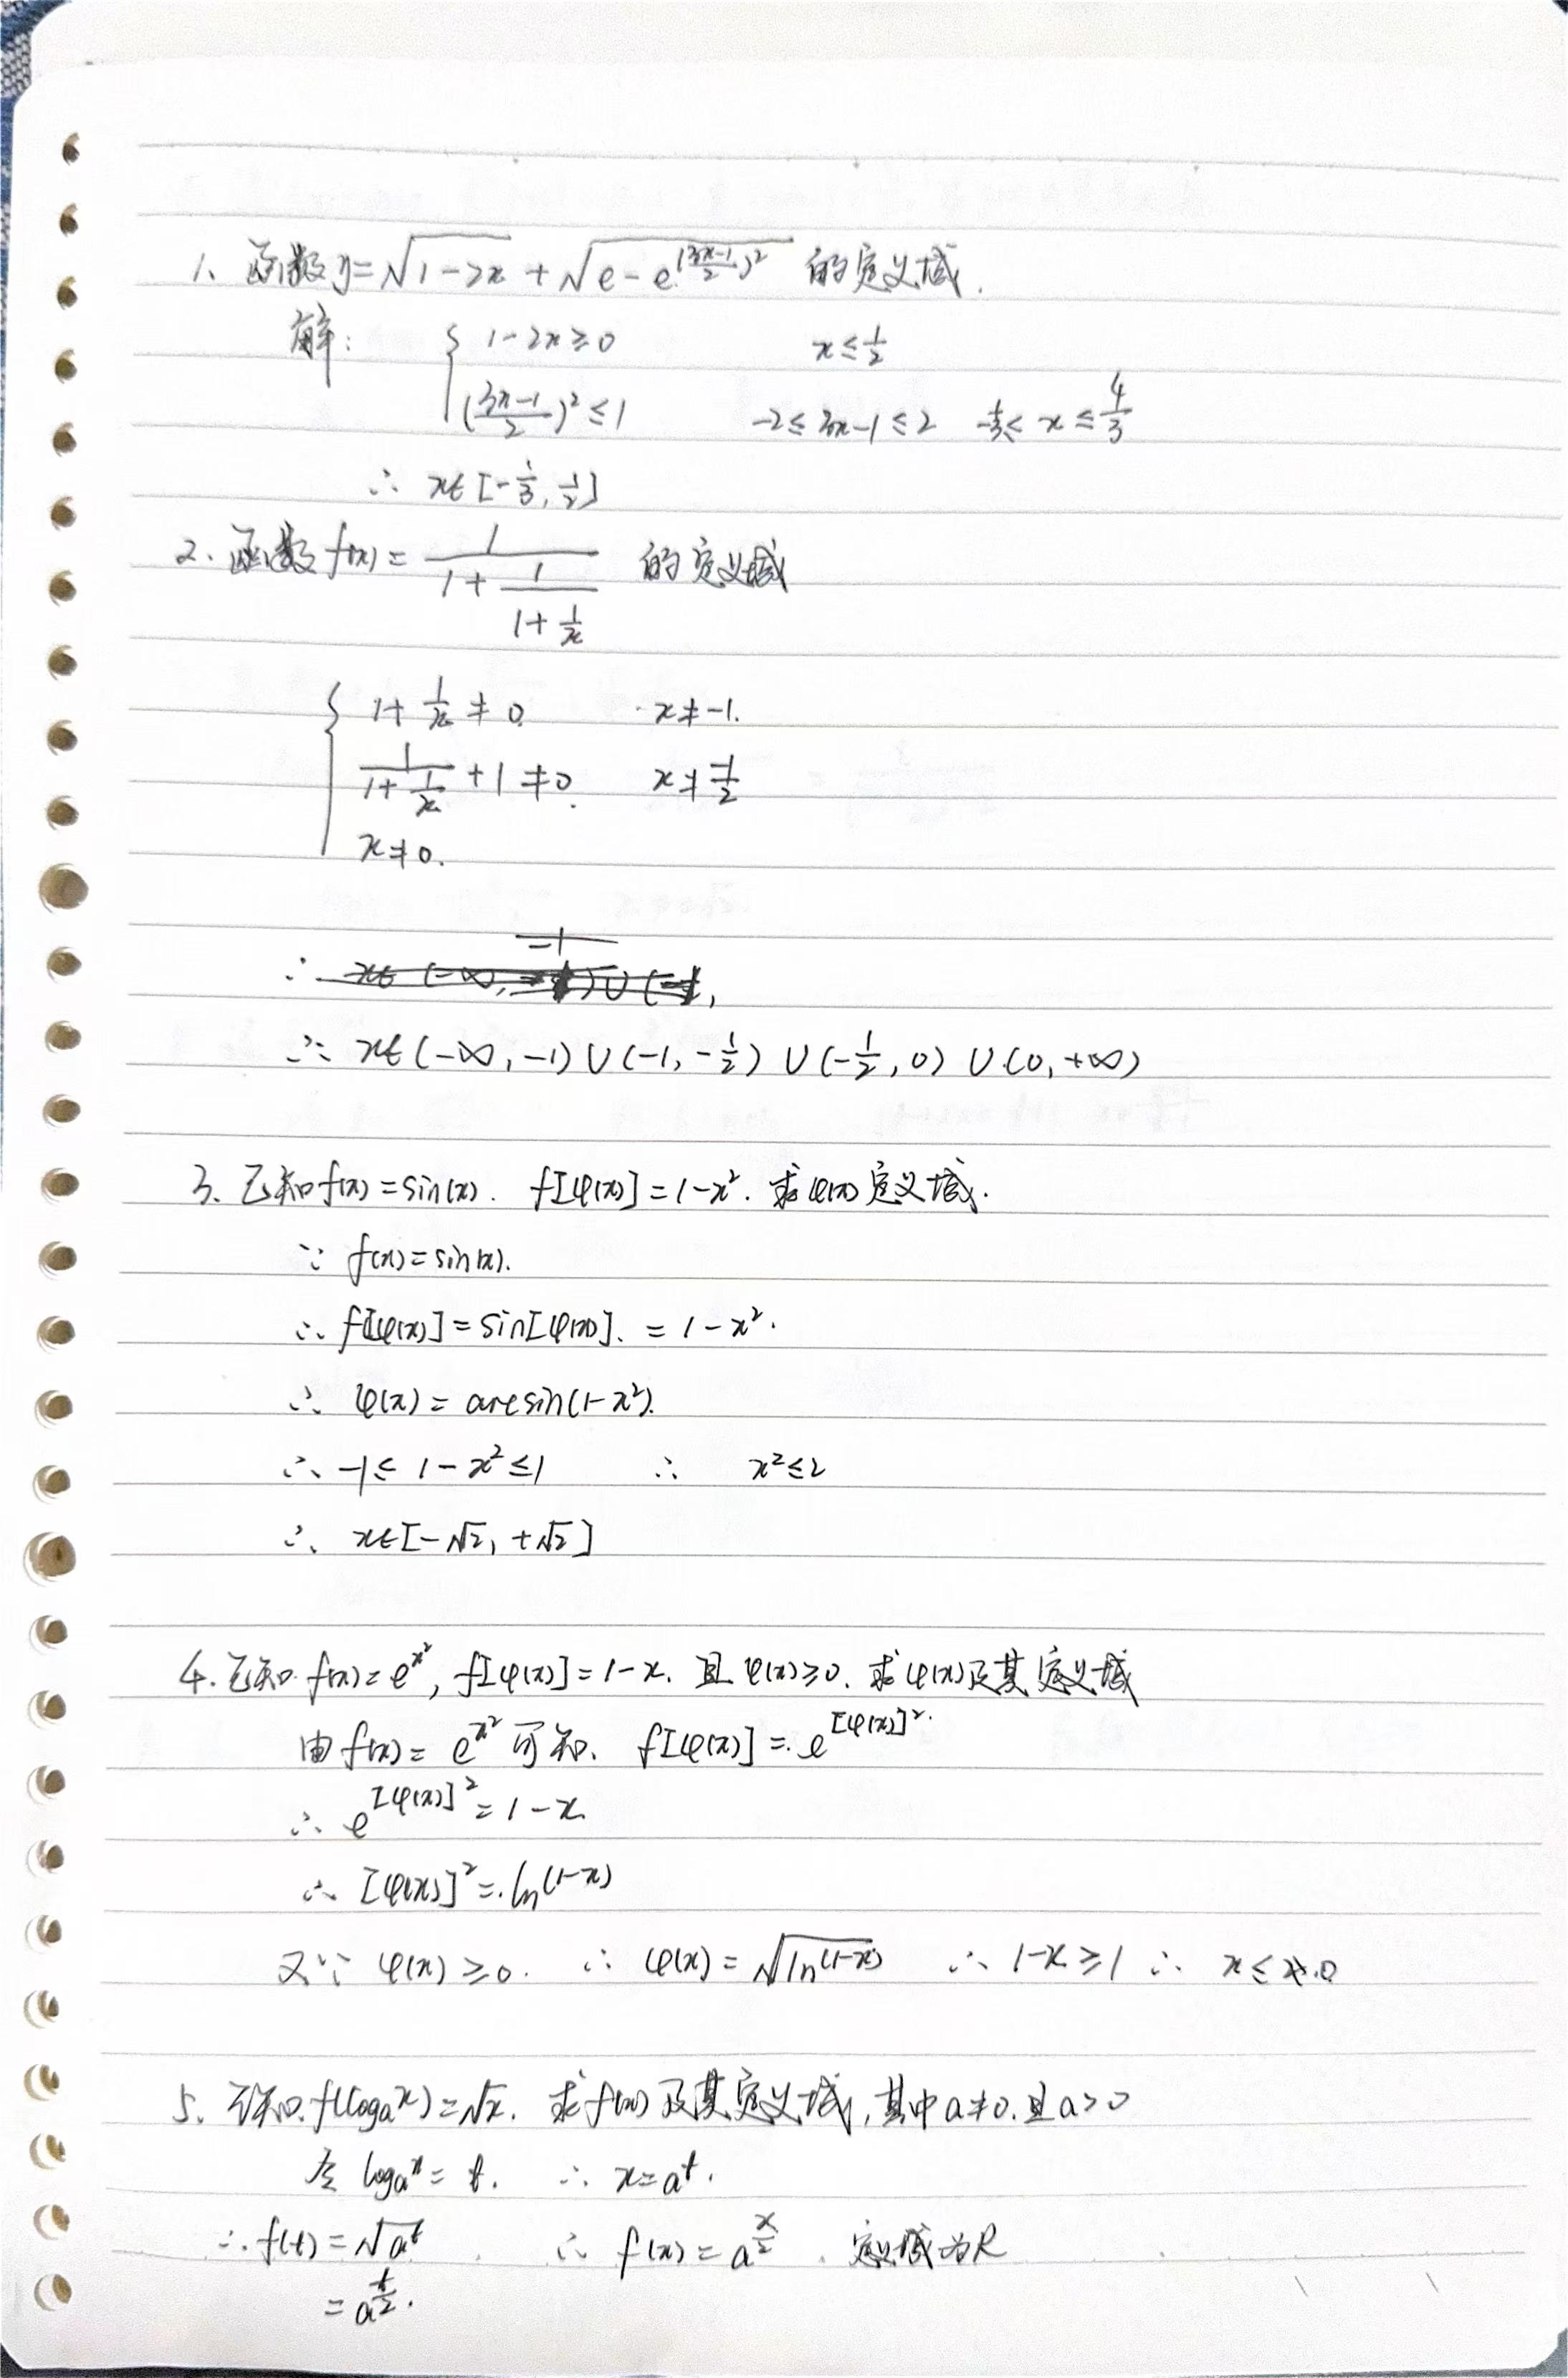 1、函数y=√(1-2x) + √(e-e^((3x-1)/2)²) 的定义域.
解: { 1-2x≥0 x≤1/2
((3x-1)/2)²≤1 -2≤3x-1≤2 -1/3≤x≤4/3
∴ x∈[-1/3, 1/2]
2. 函数f(x)=1/(1+1/(1+1/x)) 的定义域
{ 1+1/x≠0 x≠-1.
1/(1+1/x)+1≠0. x≠-1/2
x≠0.
∴ x∈(-∞,-1)∪(-1,-1/2)∪(-1/2,0)∪(0,+∞)
3. 已知f(x)=sin(x). f[φ(x)]=1-x². 求φ(x)定义域.
∵ f(x)=sin(x).
∴ f[φ(x)]=sin[φ(x)].=1-x².
∴ φ(x)=arcsin(1-x²).
∴ -1≤1-x²≤1 ∴ x²≤2
∴ x∈[-√2,+√2]
4.已知.f(x)=e^x², f[φ(x)]=1-x. 且φ(x)≥0. 求φ(x)及其定义域
由f(x)=e^x²可知、f[φ(x)]=e^[φ(x)]².
∴ e^[φ(x)]²=1-x
∴ [φ(x)]²=ln(1-x)
又∵ φ(x)≥0. ∴ φ(x)=√ln(1-x) ∴ 1-x≥1 ∴ x≤0
5. 已知.f(logₐx)=√x. 求f(x)及其定义域,其中a≠0.且a>0
令logₐx=t. ∴ x=a^t.
∴ f(t)=√a^t ∴ f(x)=a^(x/2) . 定义域为R
=a^(t/2).